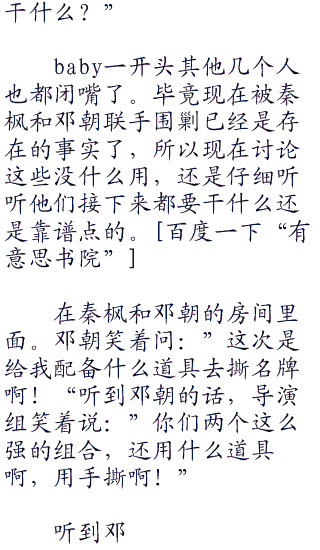 干什么？”
baby一开头其他几个人
也都闭嘴了。毕竟现在被秦
枫和邓朝联手围剿已经是存
在的事实了，所以现在讨论
这些没什么用，还是仔细听
听他们接下来都要干什么还
是靠谱点的。[百度一下“有
意思书院”]
在秦枫和邓朝的房间里
面。邓朝笑着问：”这次是
给我配备什么道具去撕名牌
啊！“听到邓朝的话，导演
组笑着说：”你们两个这么
强的组合，还用什么道具
啊，用手撕啊！”
听到邓